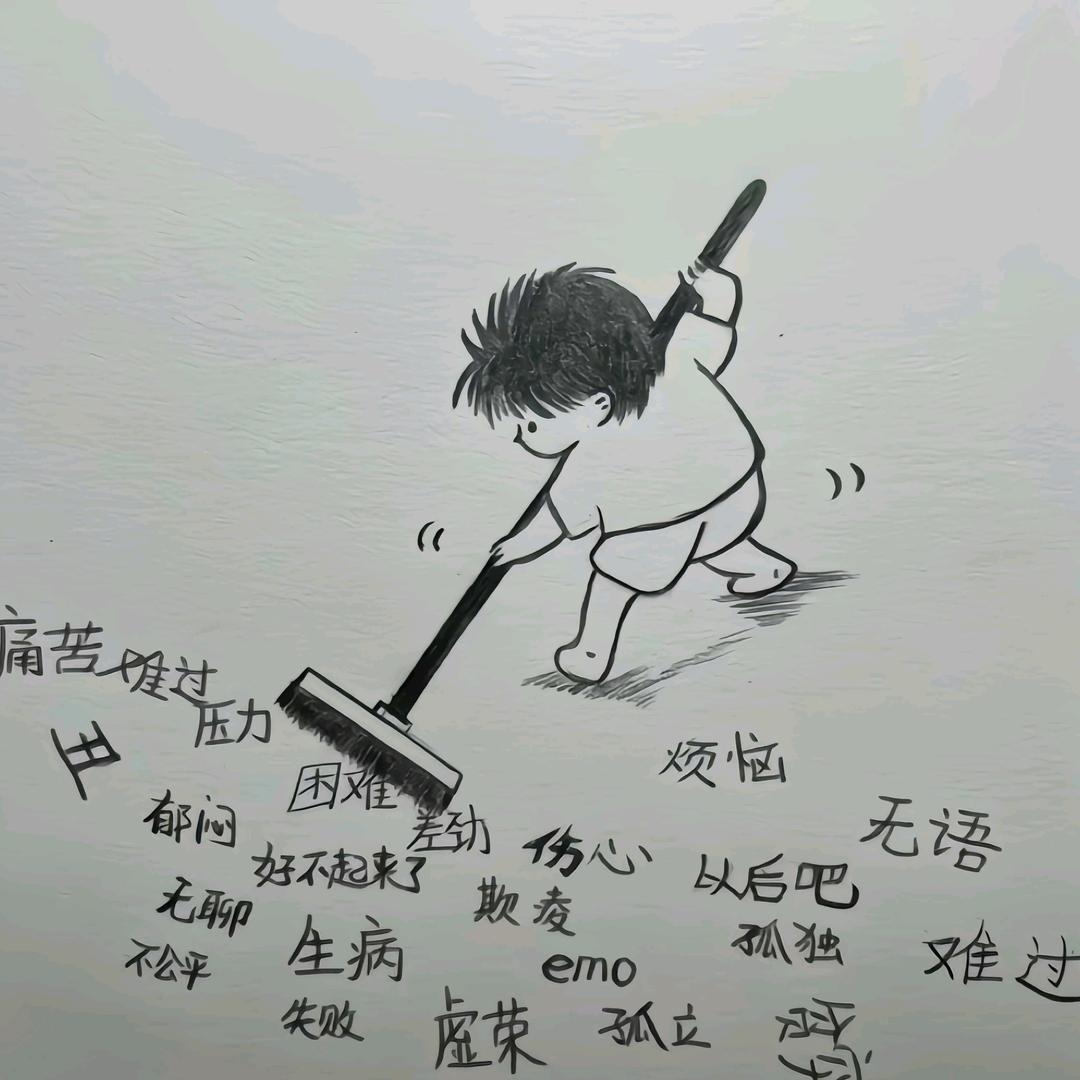 痛苦
难过
压力
丑
困难
烦恼
郁闷
差劲
无语
好不起来了
伤心
以后吧
无聊
欺凌
孤独
不公平
生病
emo
难过
失败
虚荣
孤立